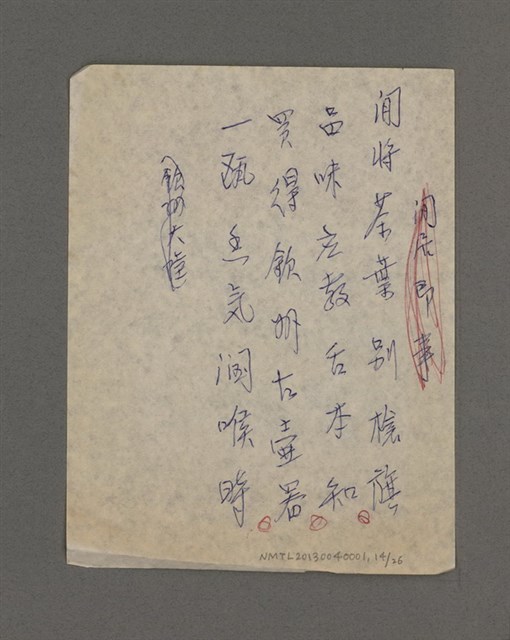 閒居即事
閒將茶葉別槍旗
品味應教舌本知
買得欽州古壺器
一甌香気潤喉時
NMTL20130040001, 14/26